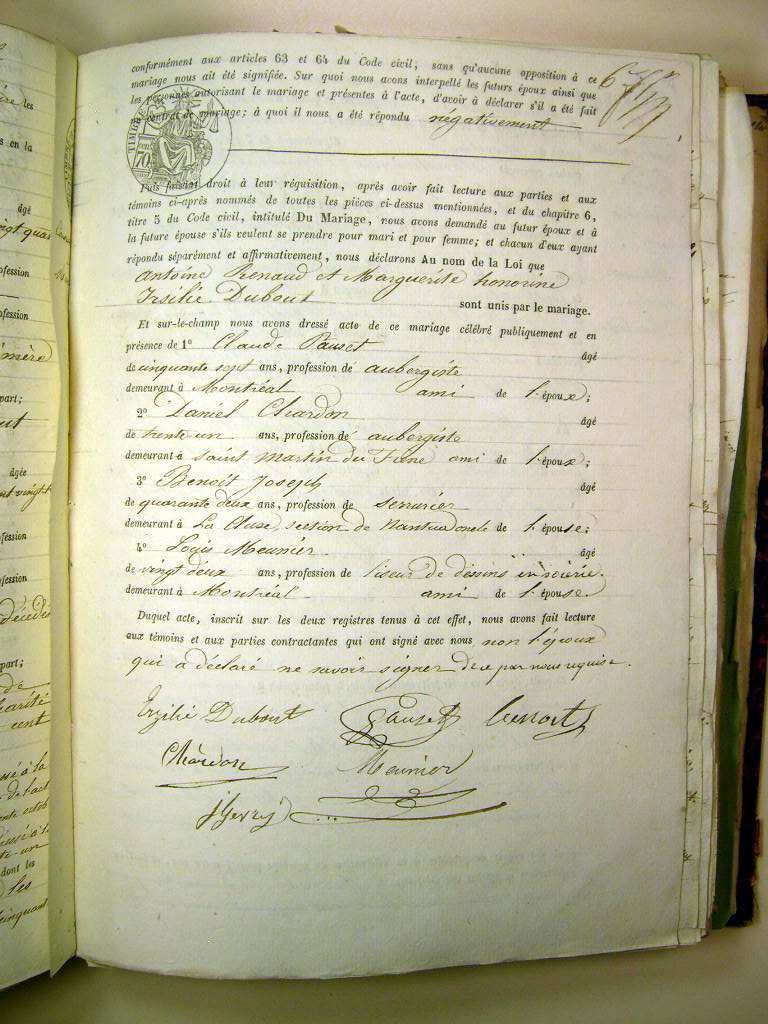 conformément aux articles 63 et 64 du Code civil, sans qu'aucune opposition à ce
mariage nous ait été signifiée. Sur quoi nous avons interpellé les futurs époux ainsi que
les personnes autorisant le mariage et présentes à l'acte, d'avoir à déclarer s'il a été fait
un contrat de mariage; à quoi il nous a été répondu négativement
TIMBRE
70
Puis faisant droit à leur réquisition, après avoir fait lecture aux parties et aux
témoins ci-après nommés de toutes les pièces ci-dessus mentionnées, et du chapitre 6,
titre 5 du Code civil, intitulé Du Mariage, nous avons demandé au futur époux et à
la future épouse s'ils veulent se prendre pour mari et pour femme; et chacun d'eux ayant
répondu séparément et affirmativement, nous déclarons Au nom de la Loi que
antoine Renaud et Marguerite honorine
Irsilie Dubout sont unis par le mariage.
Et sur-le-champ nous avons dressé acte de ce mariage célébré publiquement et en
présence de 1° Claude Pauset âgé
de cinquante sept ans, profession de aubergiste
demeurant à Montréal ami de l'époux;
2° Daniel Chardon âgé
de trente-un ans, profession de aubergiste
demeurant à saint martin du Frene ami de l'époux;
3° Benoit Joseph âgé
de quarante deux ans, profession de serrurier
demeurant à La Cluse, section de Nantua oncle de l'épouse;
4° Louis Meunier âgé
de vingt deux ans, profession de liseur de dessins en soierie
demeurant à Montréal ami de l'épouse
Duquel acte, inscrit sur les deux registres tenus à cet effet, nous avons fait lecture
aux témoins et aux parties contractantes qui ont signé avec nous non l'époux
qui a déclaré ne savoir signer de ce par nous requise.
Erzilie Dubout Pauset Benoit
Chardon Meunier